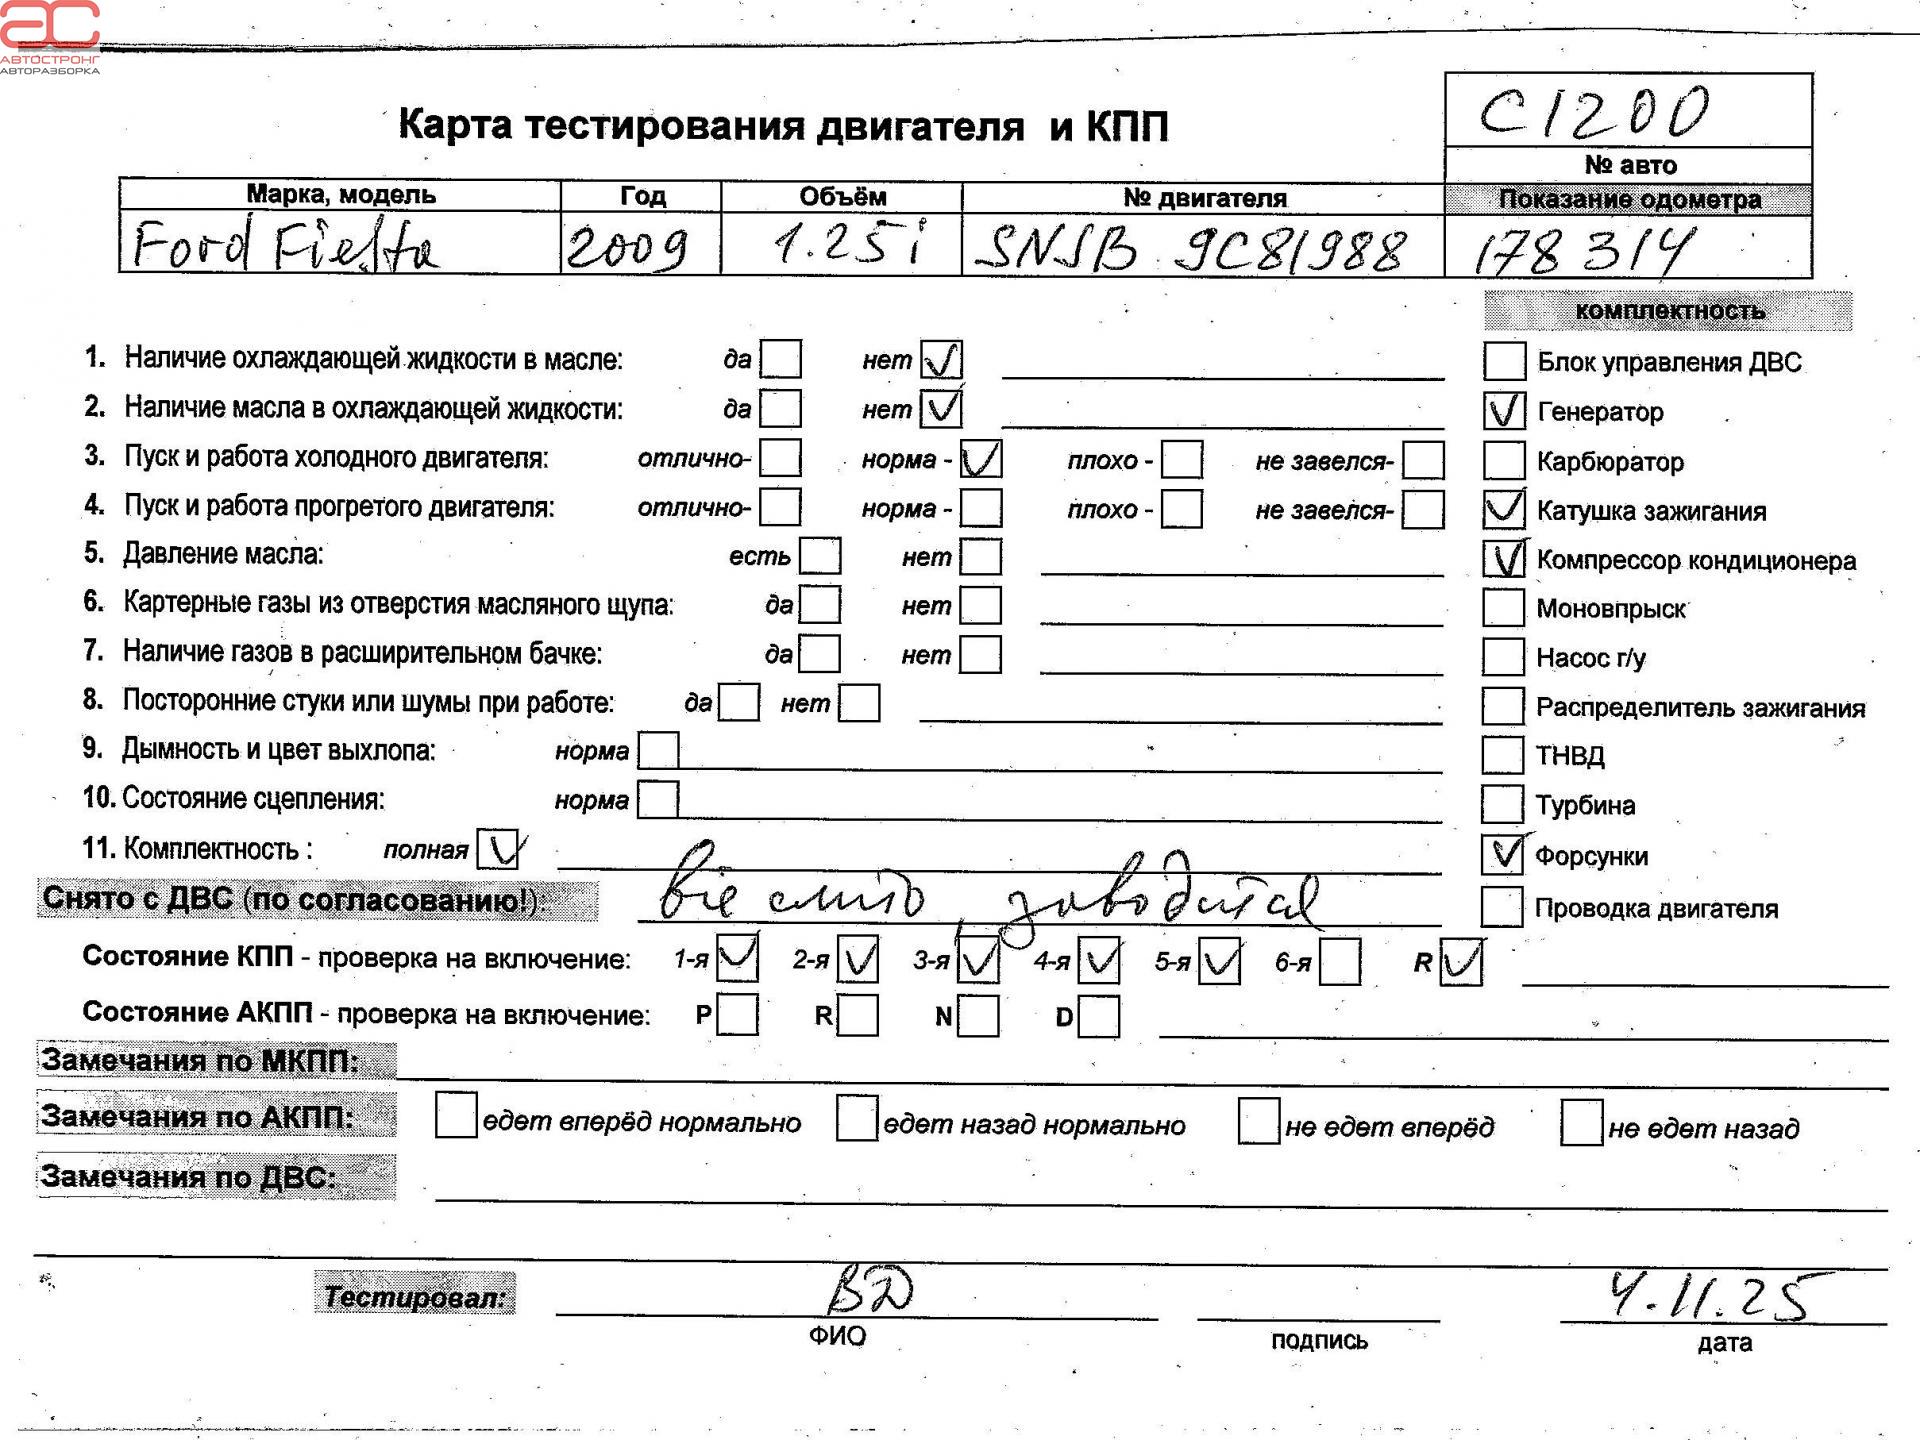 АС
АВТОСТРОНГ
АВТОРАЗБОРКА
C1200
Карта тестирования двигателя и КПП
№ авто
Марка, модель Год Объём № двигателя Показание одометра
Ford Fiesta 2009 1.25i SNJB 9C81988 178314
комплектность
1. Наличие охлаждающей жидкости в масле: да нет ✓ Блок управления ДВС
2. Наличие масла в охлаждающей жидкости: да нет ✓ ✓ Генератор
3. Пуск и работа холодного двигателя: отлично- норма - ✓ плохо - не завелся- Карбюратор
4. Пуск и работа прогретого двигателя: отлично- норма - плохо - не завелся- ✓ Катушка зажигания
5. Давление масла: есть нет ✓ Компрессор кондиционера
6. Картерные газы из отверстия масляного щупа: да нет Моновпрыск
7. Наличие газов в расширительном бачке: да нет Насос г/у
8. Посторонние стуки или шумы при работе: да нет Распределитель зажигания
9. Дымность и цвет выхлопа: норма ТНВД
10. Состояние сцепления: норма Турбина
11. Комплектность : полная ✓ ✓ Форсунки
Снято с ДВС (по согласованию!): заводится Проводка двигателя
Состояние КПП - проверка на включение: 1-я ✓ 2-я ✓ 3-я ✓ 4-я ✓ 5-я ✓ 6-я R ✓
Состояние АКПП - проверка на включение: P R N D
Замечания по МКПП:
Замечания по АКПП: едет вперёд нормально едет назад нормально не едет вперёд не едет назад
Замечания по ДВС:
Тестировал: ВД 4.11.25
ФИО подпись дата